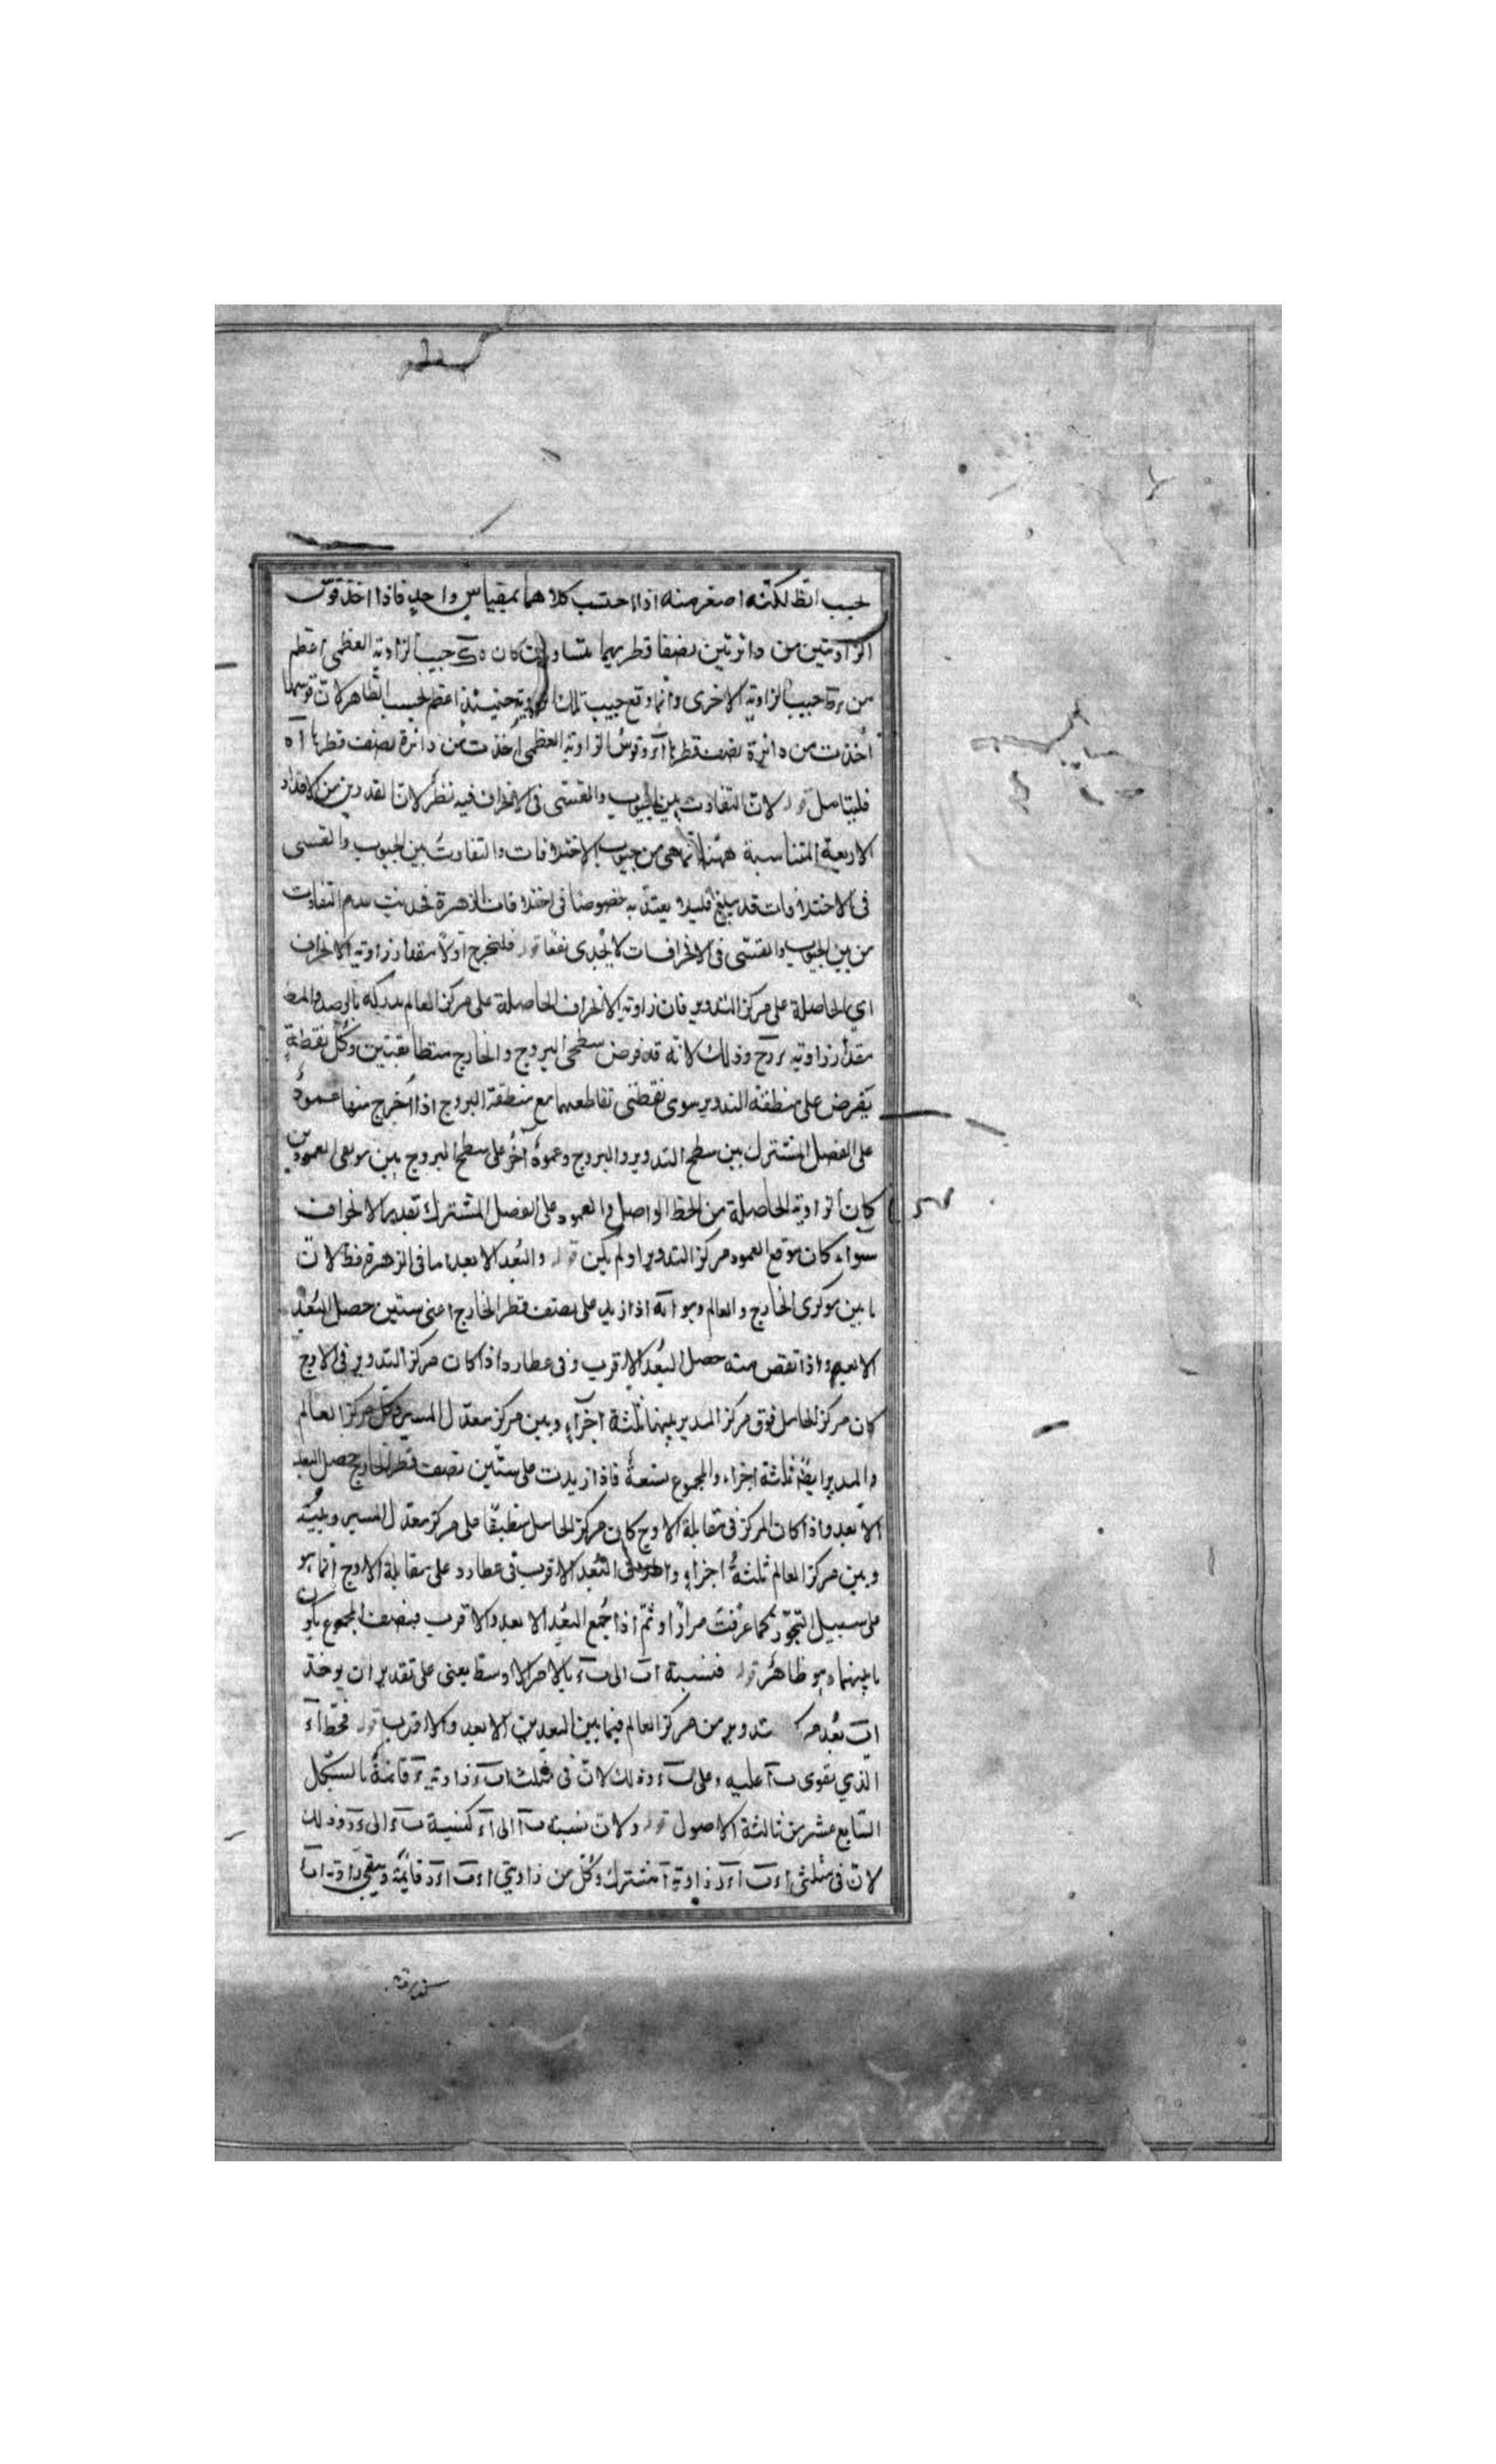 بحسب الظ لكنّه اصغر منه اذا احتسب كلاهما بمقياس واحدٍ فاذا اخذ قوس
الزاويتين من دائرتين نصفا قطريهما متساويان كان ه ك جيب الزاوية العظمى اعظم
من جيب الزاوية الاخرى وانما وقع جيب تلك الزاوية حينئذٍ اعظم بحسب الظاهر لانّ قوسها
اُخذت من دائرة نصف قطرها وقوسُ الزاوية العظمى اُخذت من دائرة نصف قطرها آه
فليتامل قوله لانّ التفاوت بين الجيوب والقسى فى الانحراف فيه نظر لانّ المقدرين من الاقدار
الاربعة المتناسبة ههنا انما هى من جيوب الاختلافات والتفاوتُ بين الجيوب والقسى
فى الاختلافات قد يبلغ قليلا يعتدّ به خصوصًا فى اختلافات الزهرة فحديث عدم التفاوت
من بين الجيوب والقسّى فى الانحرافات لا يُجدى نفعًا قوله فلنخرج اوّلًا مقدار زاوية الانحراف
اي الحاصلة على مركز التدوير فان زاوية الانحراف الحاصلة على مركز العالم مدركه بالرصد والمط
مقدار زاوية وذلك لانه قد فرض سطحى البروج والخارج متطابقتين وكلّ نقطةٍ
يُفرض على منطقة التدوير سوى نقطتى تقاطعهما مع منطقة البروج اذا اُخرج منها عمودٌ
على الفصل المشترك بين سطح التدوير والبروج وعمودٌ آخرُ على سطح البروج بين موقعى العمودين
كان الزاوية الحاصلة من الخط الواصل والعمود على الفصل المشترك بقدر الانحراف
سَواء كان موقع العمود مركز التدوير او لم يكن قوله والبُعد الابعد اما فى الزهرة فظ لانّ
ما بين مركزى الخارج والعالم وهو اذا زيد على نصف قطر الخارج اعنى ستين حصل البُعدُ
الابعد واذا نقص منه حصل البُعد الاقرب وفى عطارد اذا كان مركز التدوير فى الاوج
كان مركز الحامل فوق مركز المدير بينهما ثلثة اجزآءٍ وبين مركز معدّل المسير وكل مركز العالم
والمدير ايضًا ثلثة اجزاء والمجموع تسعةٌ فاذا زيدت على ستّين نصف قطر الخارج حصل البعد
الابعد واذا كان المركز فى مقابلة الاوج كان مركز الحامل منطبقًا على مركز معدّل المسير وبينَه
وبين مركز العالم ثلثةُ اجزاءٍ البُعد الاقرب فى عطارد على مقابلة الاوج انما هو
على سبيل التجوّز كما عرفت مرارًا وثمّ اذا جُمع البُعد الابعد والاقرب فنصف المجموع يكون
ما بينهما وهو ظاهر قوله فنسبة اب الى ب ء بالامر الاوسط يعنى على تقدير ان يوخذ
اب بُعد مركز تدوير من مركز العالم فيما بين البعدين الابعد والاقرب قوله فخطّ آء
الذي يقوى ب آ عليه وعلى ب ء وذلك لانّ فى مثلث اب ء زاوية ء قائمةٌ بالشكل
السّابع عشر من ثالثة الاصول قوله ولانّ نسبة ب آ الى آ ء كنسبة ب ء الى ء د وذلك
لانّ فى مثلثى اء ب آ ء د زاوية آ مشترك وكلّ من زاويتي اء ب اء د قايمةٌ ويبقى زاوية اب